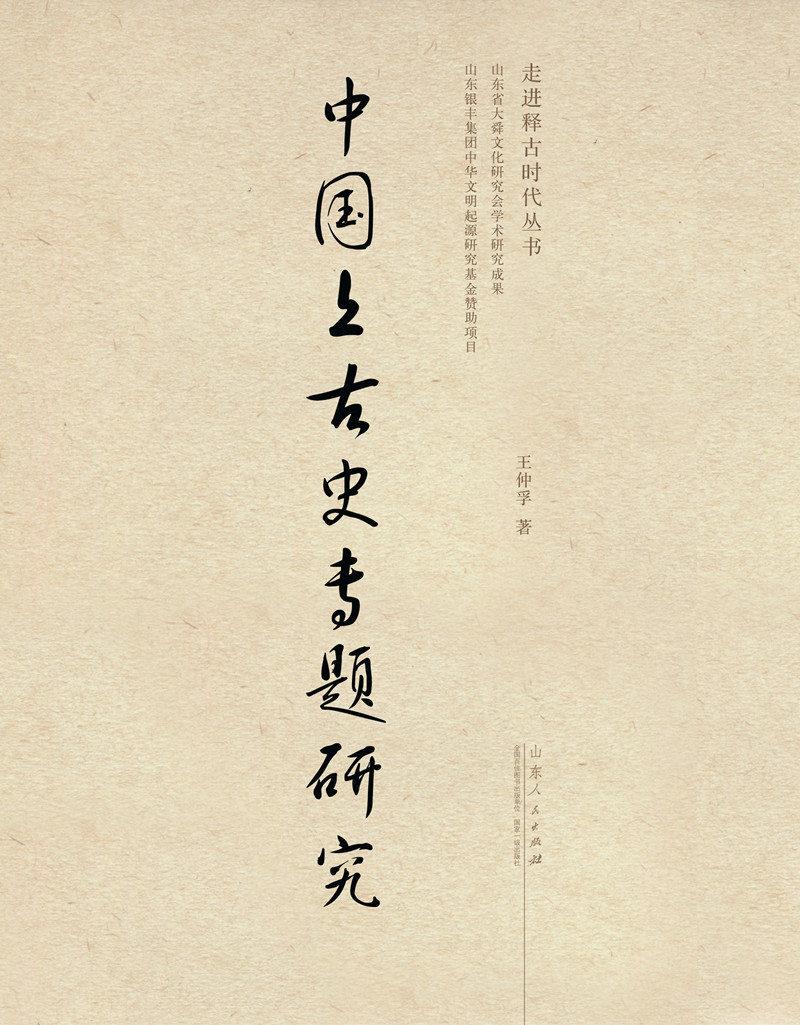 走进释古时代丛书
山东省大舜文化研究会学术研究成果
山东银丰集团中华文明起源研究基金赞助项目
中国上古史专题研究
王仲孚 著
山东人民出版社
全国百佳图书出版单位 国家一级出版社